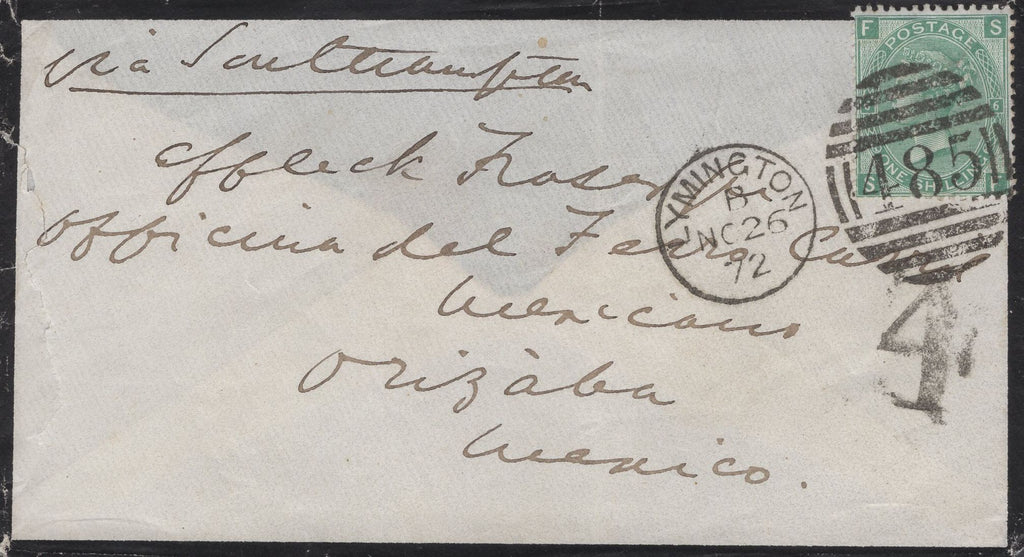 via Southampton
Affleck Fraser
Officina del Ferro Carril
Mexicano
Orizába
Mexico.
F S
POSTAGE
6
S F
485
LYMINGTON
B
NO 26
72
4